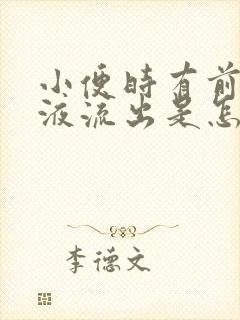 小便时有前
液流出是怎
李德文